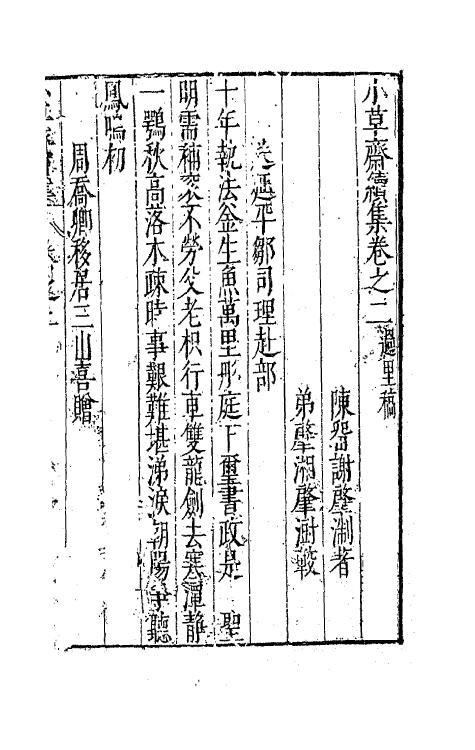 小草齋續集卷之二 還里稿
陳留謝肇淛著
弟肇湘肇澍較
送延平鄒司理赴部
十年執法釡生魚萬里彤庭下璽書政是 聖
明需補衮不勞父老枳行車雙龍劍去寒潭靜
一鶚秋高落木疎時事艱難堪涕淚朝陽爭聽
鳳鳴初
周喬卿移居三山喜贈